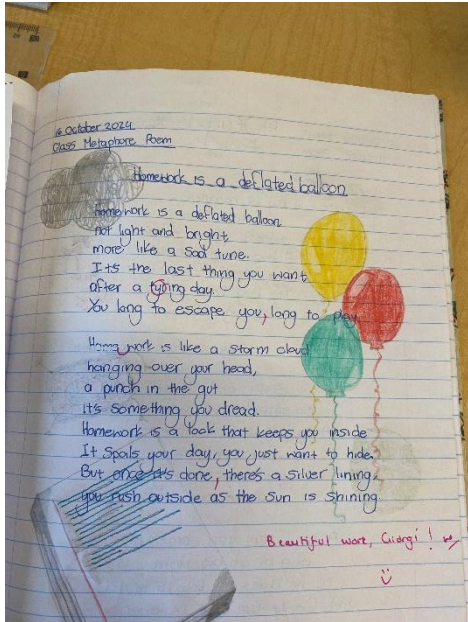 16 October 2024
Class Metaphore Poem
Homework is a deflated balloon
Homework is a deflated balloon
not light and bright,
more like a sad tune.
It's the last thing you want
after a tyring day.
You long to escape you, long to play.
Homework is like a storm cloud
hanging over your head,
a punch in the gut
it's something you dread.
Homework is a lock that keeps you inside
It spoils your day, you just want to hide.
But once it's done, there's a silver lining,
you rush outside as the sun is shining.
Beautiful work, Giorgi!